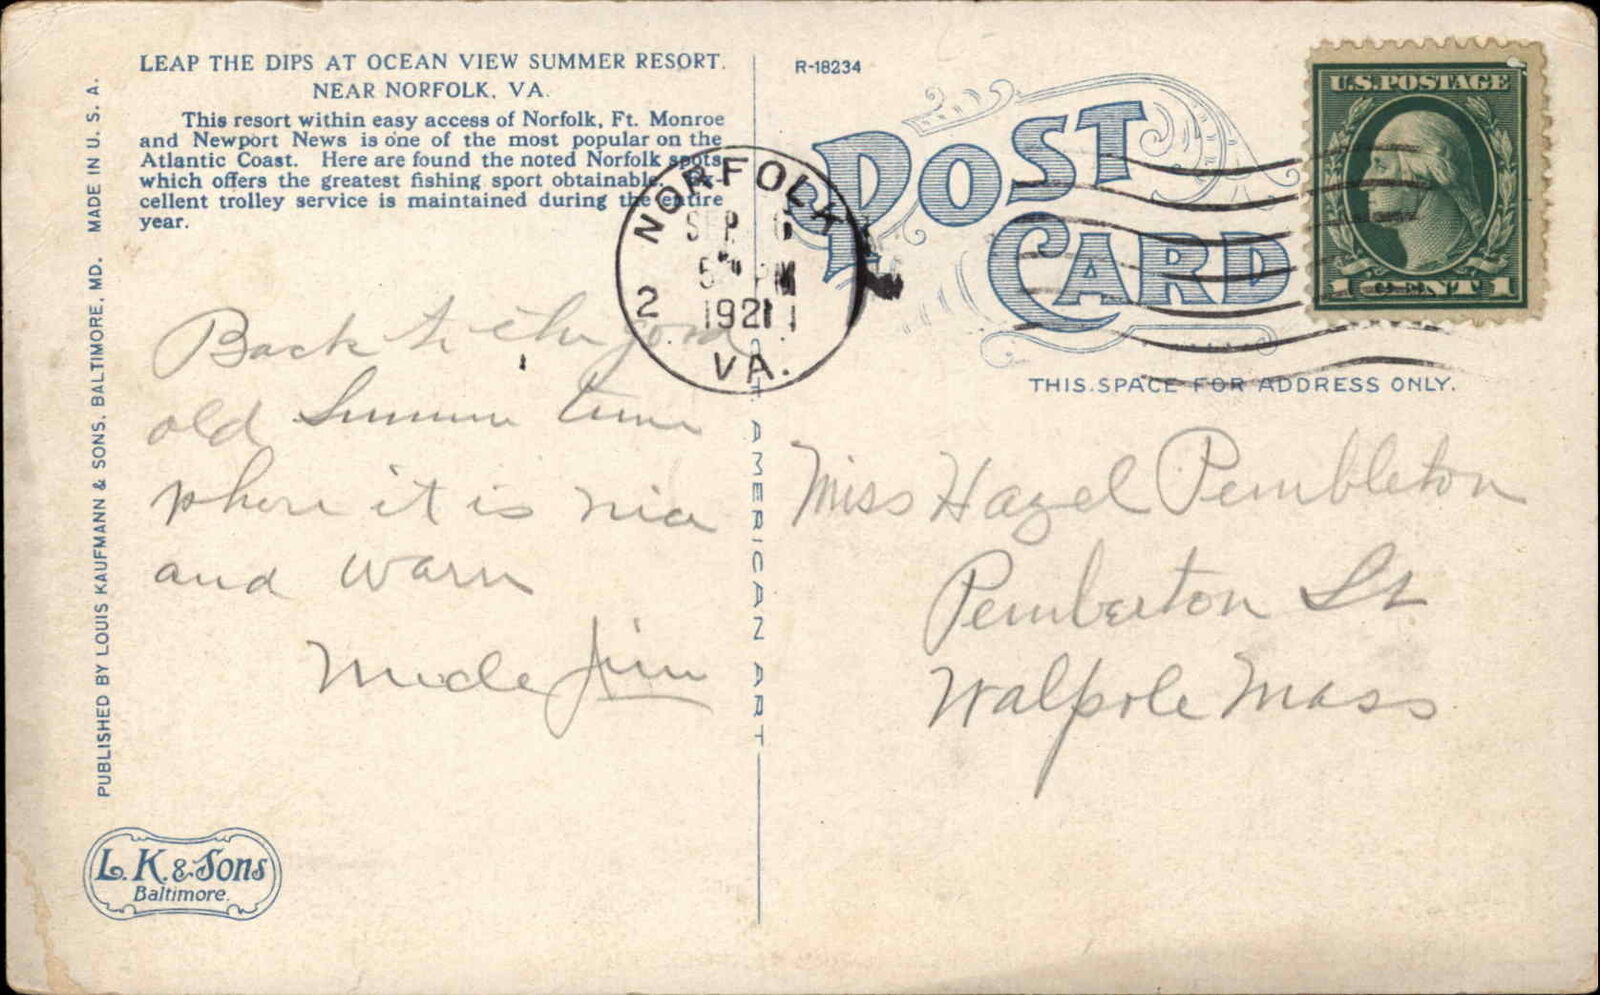 LEAP THE DIPS AT OCEAN VIEW SUMMER RESORT.
NEAR NORFOLK, VA.
This resort within easy access of Norfolk, Ft. Monroe
and Newport News is one of the most popular on the
Atlantic Coast. Here are found the noted Norfolk spots
which offers the greatest fishing sport obtainable. Ex-
cellent trolley service is maintained during the entire
year.
PUBLISHED BY LOUIS KAUFMANN & SONS, BALTIMORE, MD. MADE IN U. S. A.
Back to the good
old Summer time
where it is nice
and warm
Uncle Jim
L. K. & Sons
Baltimore.
AMERICAN ART
R-18234
POST
CARD
NORFOLK
SEP 6
5 PM
1921
2
VA.
U.S. POSTAGE
1 CENT 1
THIS SPACE FOR ADDRESS ONLY.
Miss Hazel Pembleton
Pemberton St
Walpole Mass